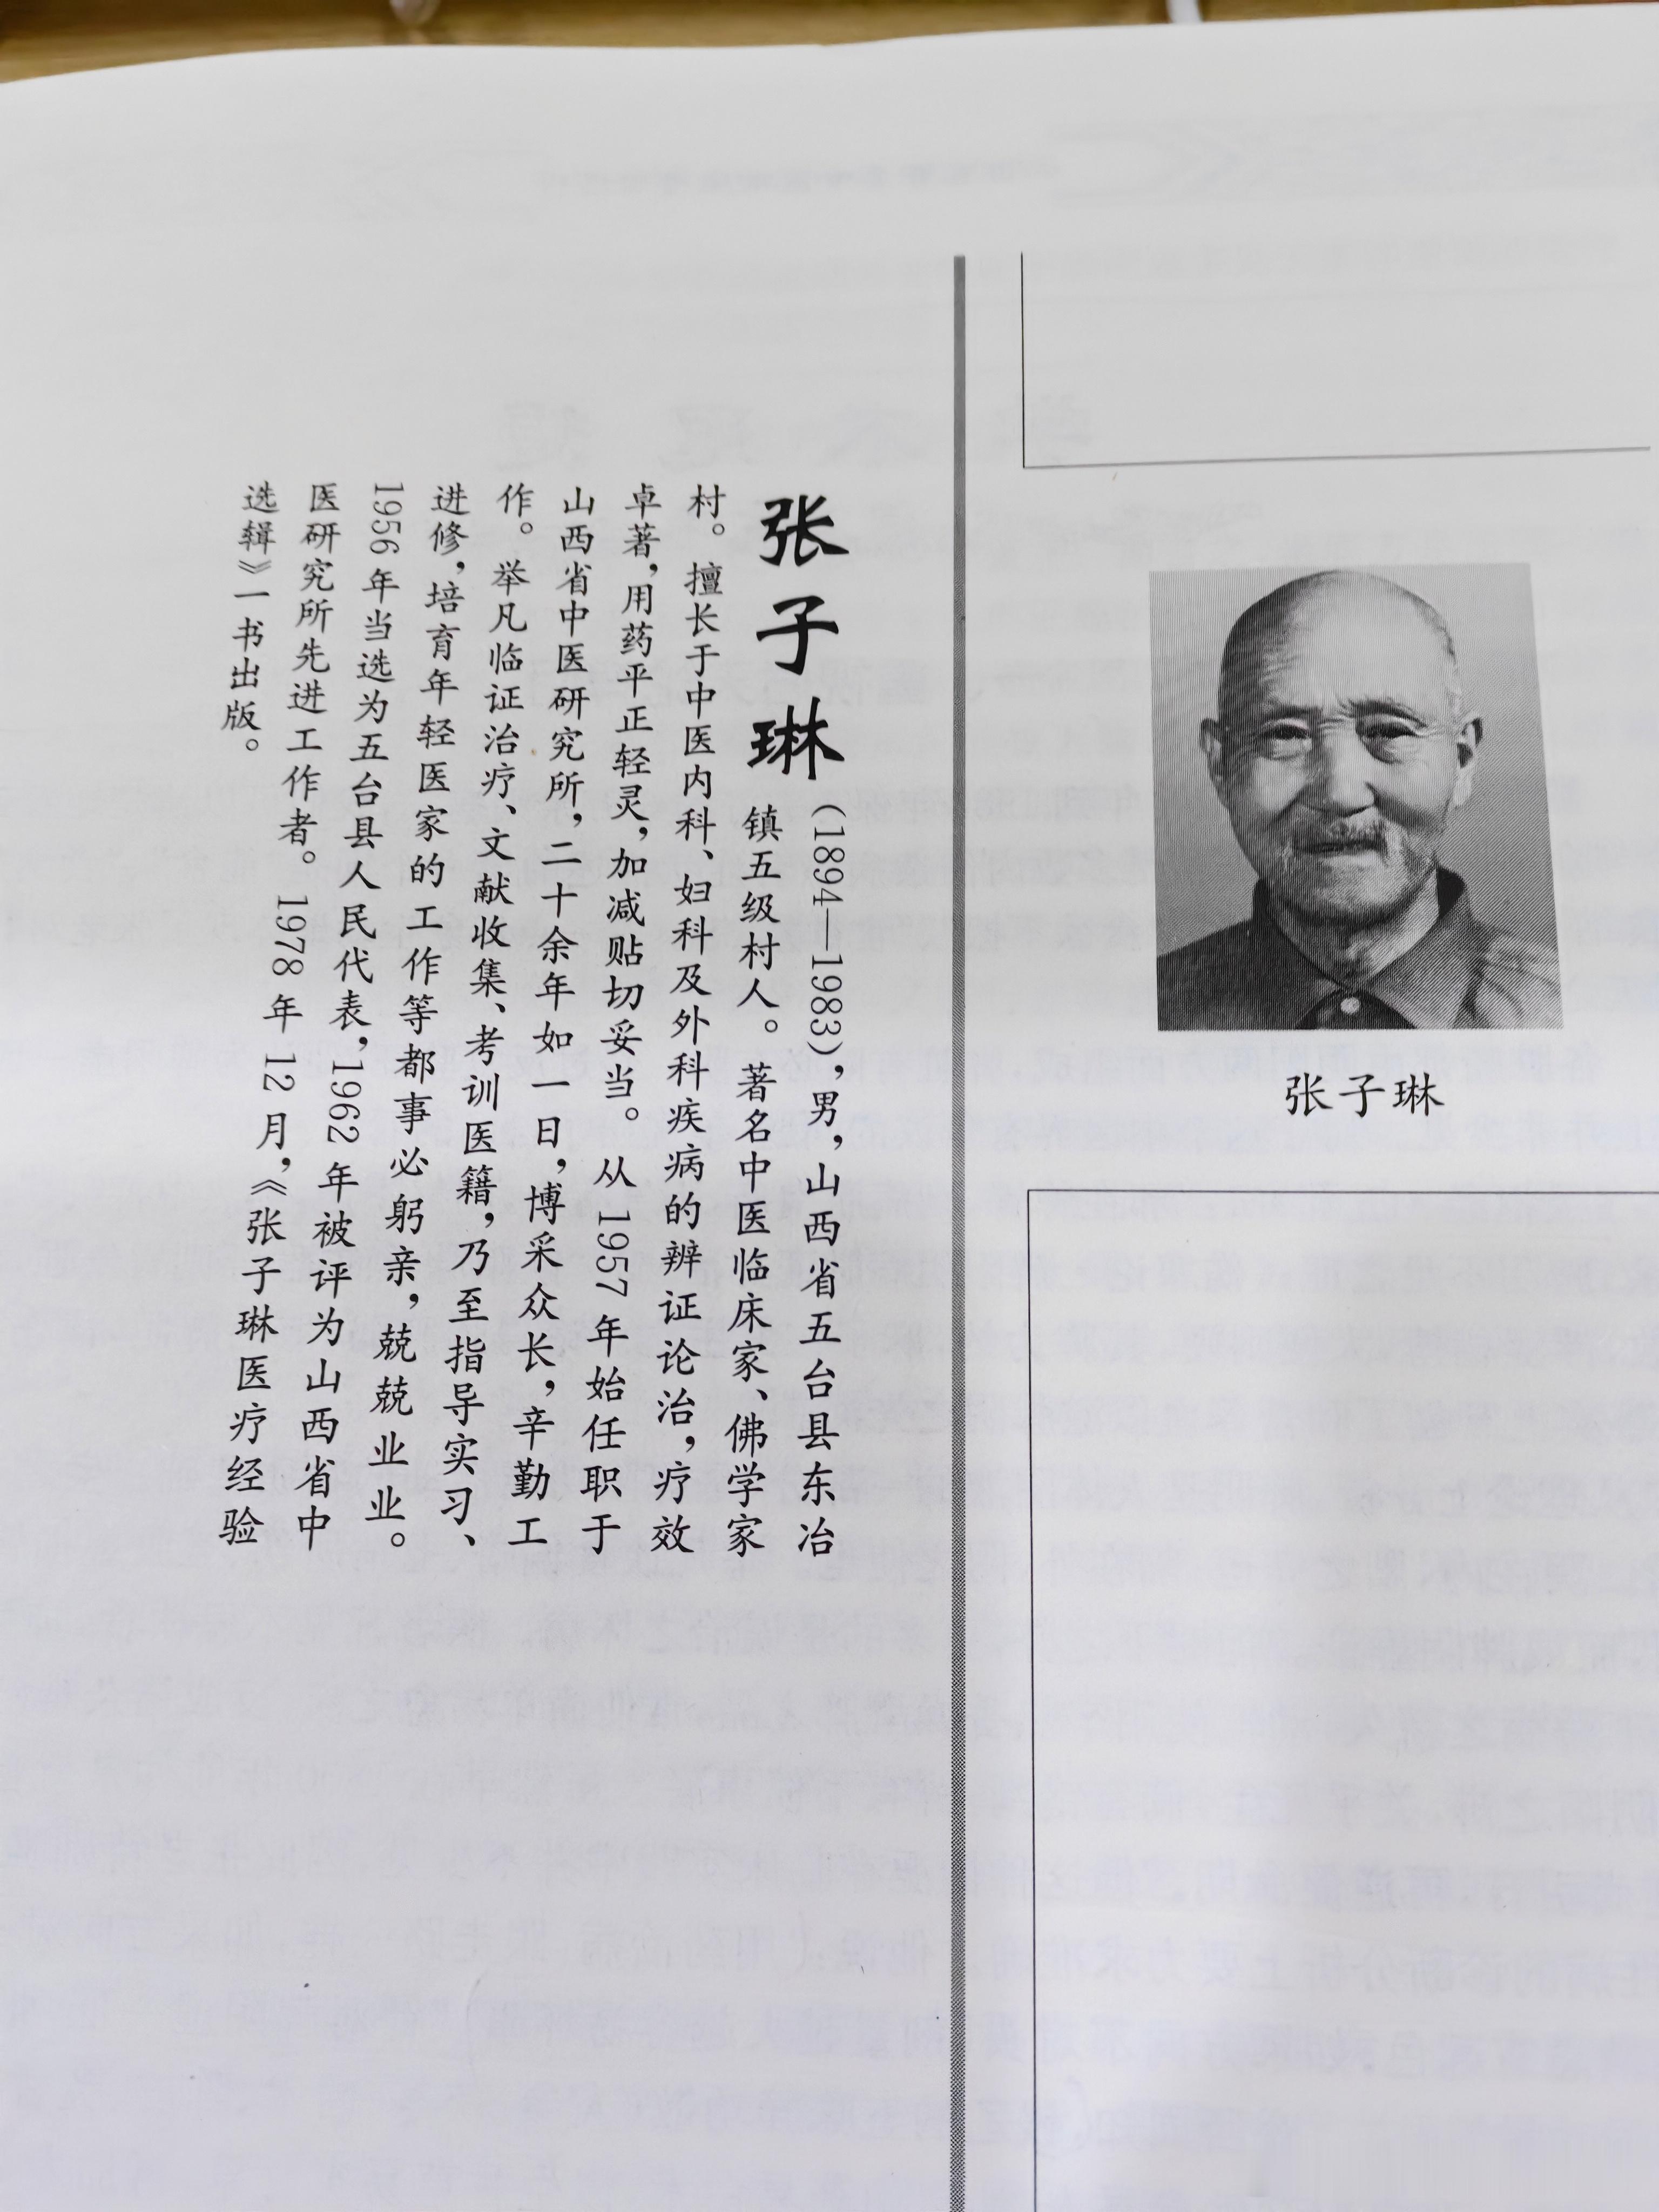 张子琳
张子琳
（1894—1983），男，山西省五台县东冶
镇五级村人。著名中医临床家、佛学家
村。擅长于中医内科、妇科及外科疾病的辨证论治，疗效
卓著，用药平正轻灵，加减贴切妥当。从 1957 年始任职于
山西省中医研究所，二十余年如一日，博采众长，辛勤工
作。举凡临证治疗、文献收集、考训医籍，乃至指导实习、
进修，培育年轻医家的工作等都事必躬亲，兢兢业业。
1956 年当选为五台县人民代表，1962 年被评为山西省中
医研究所先进工作者。1978 年 12 月，《张子琳医疗经验
选辑》一书出版。